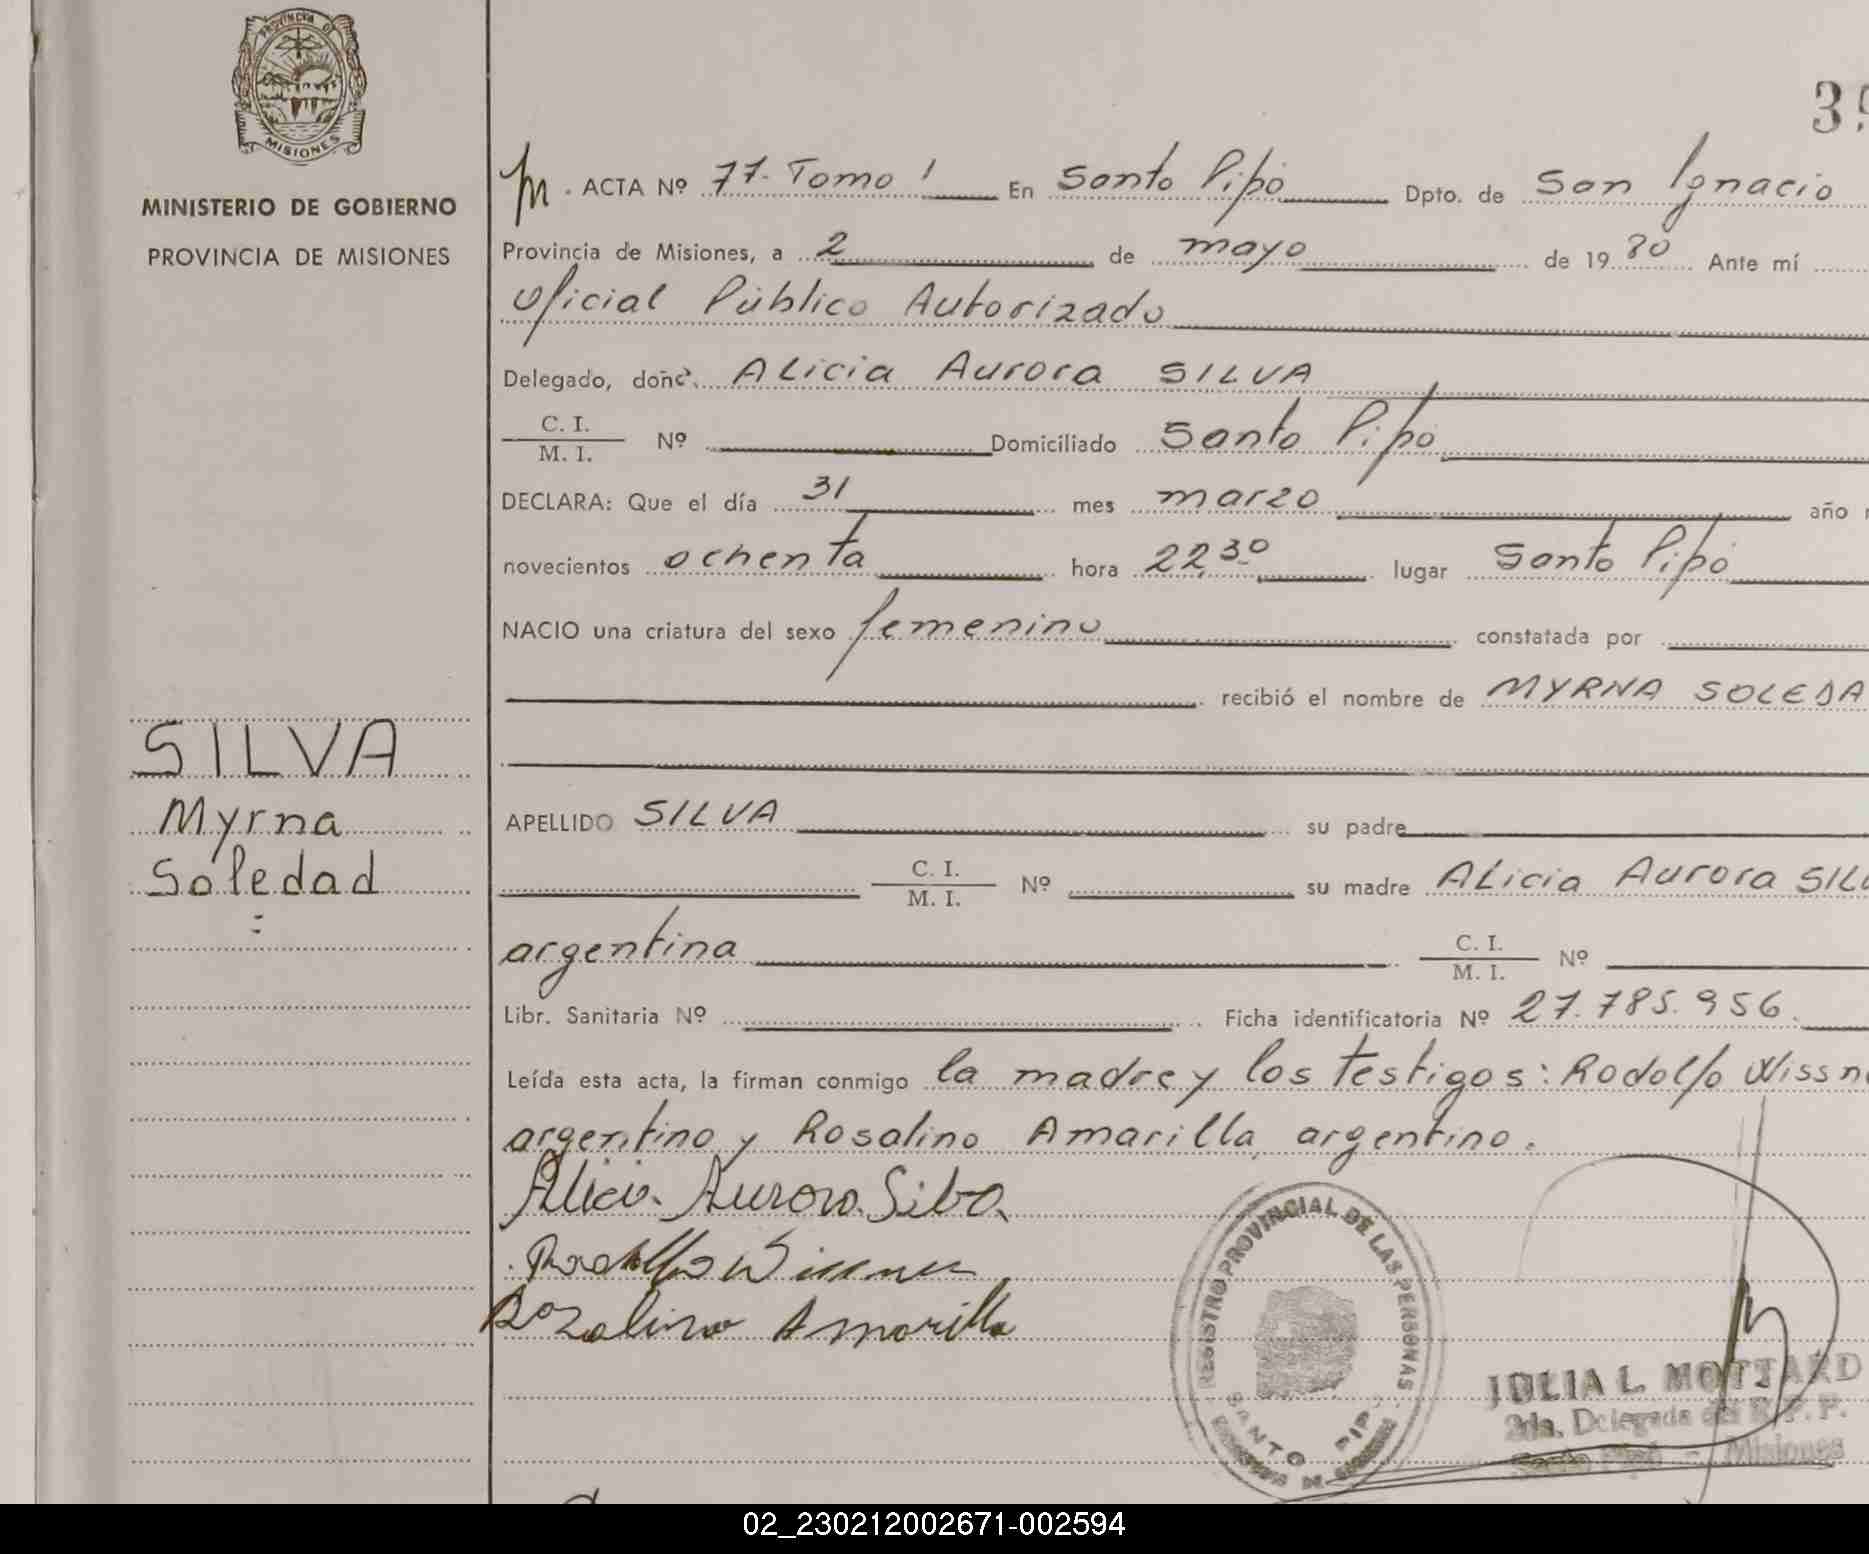 PROVINCIA DE
MISIONES
MINISTERIO DE GOBIERNO
PROVINCIA DE MISIONES
SILVA
Myrna
Soledad
ACTA Nº 77. Tomo 1 En Santo Pipó Dpto. de San Ignacio
Provincia de Misiones, a 2 de mayo de 1980 Ante mí
Oficial Público Autorizado
Delegado, doña Alicia Aurora SILVA
C. I.
M. I. Nº Domiciliado Santo Pipó
DECLARA: Que el día 31 mes marzo año
novecientos ochenta hora 22,30 lugar Santo Pipó
NACIO una criatura del sexo femenino constatada por
recibió el nombre de MYRNA SOLEDA
APELLIDO SILVA su padre
C. I.
M. I. Nº su madre Alicia Aurora SIL
argentina C. I.
M. I. Nº
Libr. Sanitaria Nº Ficha identificatoria Nº 27.785.956.
Leída esta acta, la firman conmigo la madre y los testigos: Rodolfo Wissn
argentino y Rosalino Amarilla, argentino.
Alicia Aurora Silva
Rodolfo Wissner
Rozalino Amarilla
REGISTRO PROVINCIAL DE LAS PERSONAS
SANTO PIPO
JULIA L. MOTTARD
2da. Delegada del R. P. P.
Santo Pipó - Misiones
02_230212002671-002594